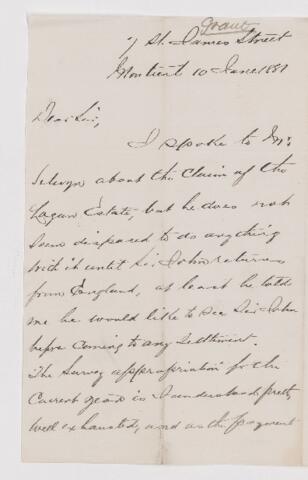 Grant
7 St. James Street
Montreal 10 June 1881
Dear Sir,
I spoke to Mr
Selwyn about the Claim of the
Logan Estate, but he does not
seem disposed to do anything
with it until Sir John returns
from England, at least he told
me he would like to see Sir John
before coming to any settlement.
The Survey appropriation for the
Current year is I understand pretty
well exhausted, and as the payment